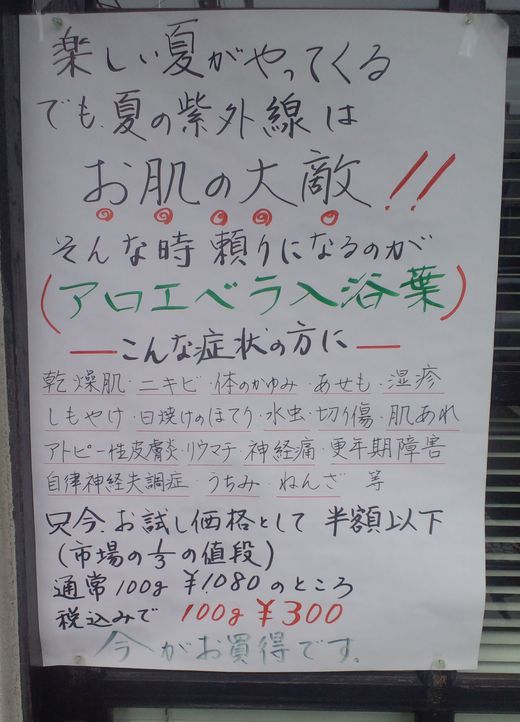 楽しい夏がやってくる
でも、夏の紫外線は
お肌の大敵!!
そんな時頼りになるのが
(アロエベラ入浴葉)
―こんな症状の方に―
乾燥肌・ニキビ・体のかゆみ・あせも・湿疹
しもやけ・日焼けのほてり・水虫・切り傷・肌あれ
アトピー性皮膚炎・リウマチ・神経痛・更年期障害
自律神経失調症・うちみ・ねんざ 等
只今、お試し価格として 半額以下
(市場の1/3の値段)
通常100g ¥1.080のところ
税込みで 100g ¥300
今がお買得です.